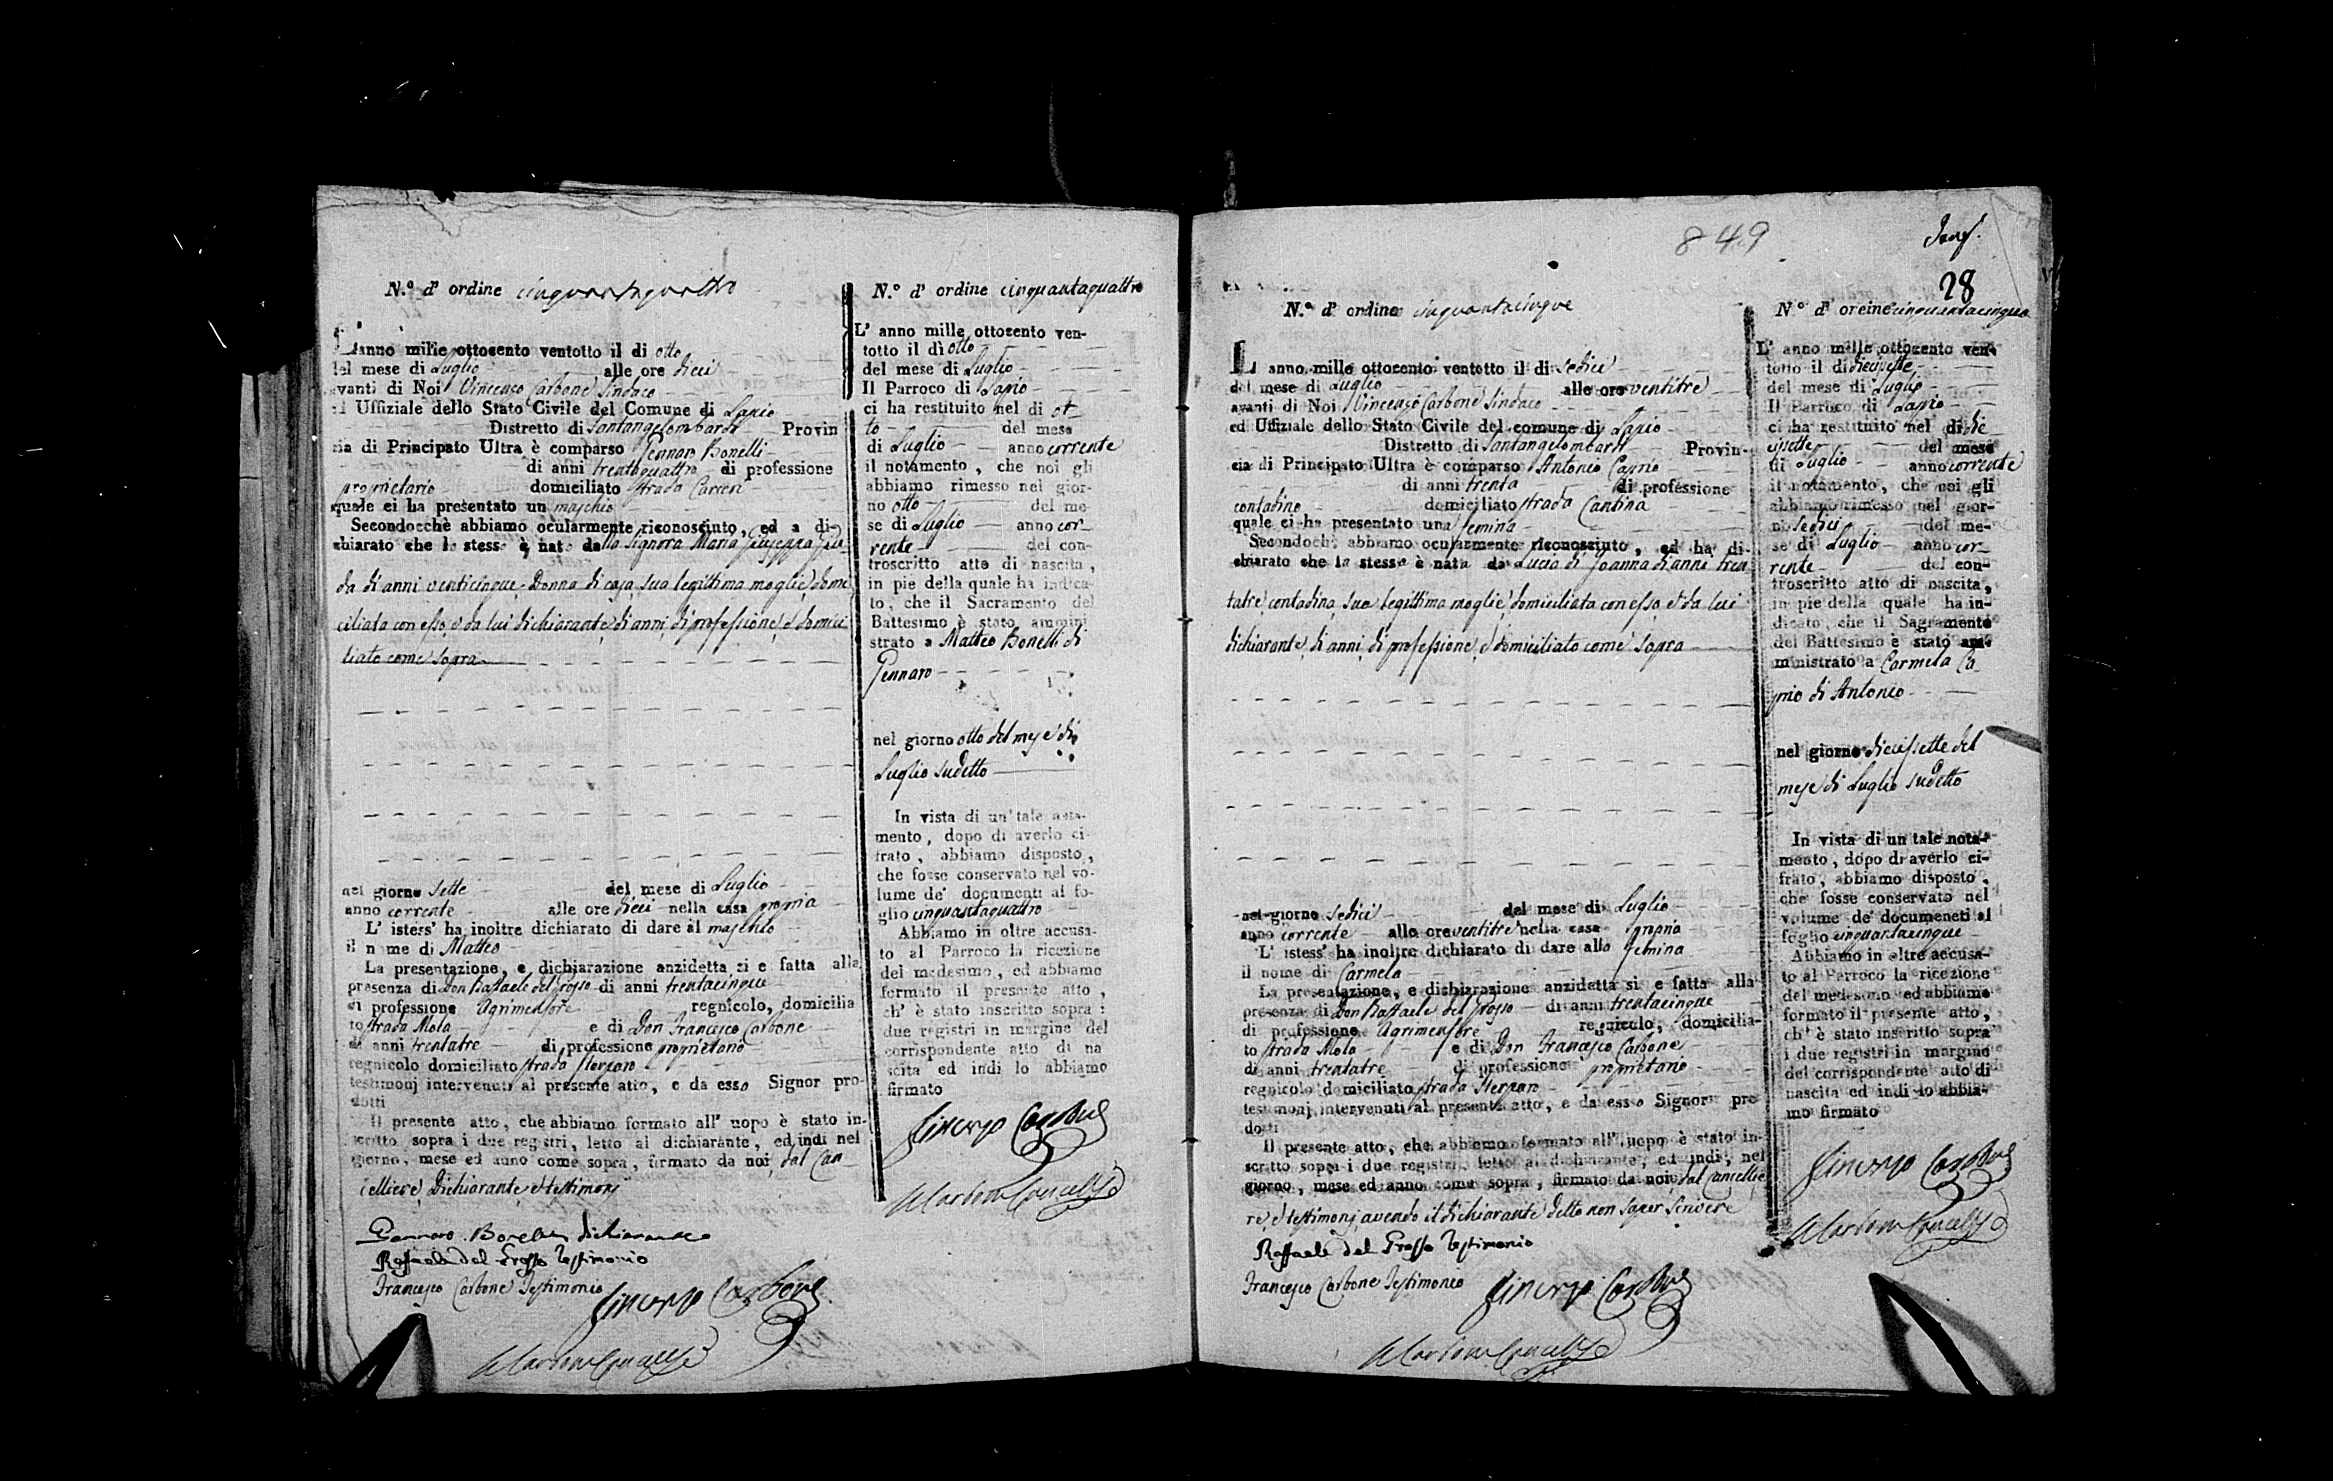 N.º d' ordine cinquantaquattro
L'anno mille ottocento ventotto il di otto
del mese di Luglio alle ore dieci
avanti di Noi Vincenzo Carbone Sindaco
ed Uffiziale dello Stato Civile del Comune di Lapio
Distretto di Santangelombardi Provin
cia di Principato Ultra è comparso Gennaro Bonelli
di anni trentaquattro di professione
proprietario domiciliato strada Carceri
quale ci ha presentato un maschio
Secondocchè abbiamo ocularmente riconosciuto, ed a di-
chiarato che lo stesso è nato dalla Signora Maria Giuseppa
da di anni venticinque Donna di casa, sua legittima moglie, domi
ciliata con esso, e da lui dichiarante, di anni, di professione, e domici
liato come sopra
nel giorno sette del mese di Luglio
anno corrente alle ore dieci nella casa propria
L' istess' ha inoltre dichiarato di dare al maschio
il nome di Matteo
La presentazione, e dichiarazione anzidetta si e fatta alla
presenza di Don Raffaele del Grosso di anni trentacinque
di professione Agrimensore regnicolo, domicilia
to strada Mola e di Don Francesco Carbone
di anni trentatre di professione proprietario
regnicolo domiciliato strada Sterparo
testimonj intervenuti al presente atto, e da esso Signor pro-
dotti
Il presente atto, che abbiamo formato all' uopo è stato in-
scritto sopra i due registri, letto al dichiarante, ed indi nel
giorno, mese ed anno come sopra, firmato da noi, dal Can
celliere, Dichiarante, e testimonj
Gennaro Bonelli dichiarante
Raffaele del Grosso Testimonio
Francesco Carbone Testimonio Vincenzo Carbone
N.º d' ordine cinquantaquattro
L' anno mille ottocento ven-
totto il dì otto
del mese di Luglio
Il Parroco di Lapio
ci ha restituito nel di ot
to del mese
di Luglio anno corrente
il notamento, che noi gli
abbiamo rimesso nel gior-
no otto del me-
se di Luglio anno cor_
rente del con-
troscritto atto di nascita,
in pie della quale ha indica-
to, che il Sacramento del
Battesimo è stato ammini
strato a Matteo Bonelli di
Gennaro
nel giorno otto del mese di
Luglio sudetto
In vista di un' tale nota-
mento, dopo di averlo ci-
frato, abbiamo disposto,
che fosse conservato nel vo-
lume de' documenti al fo-
glio cinquantaquattro
Abbiamo in oltre accusa-
to al Parroco la ricezione
del medesimo, ed abbiamo
formato il presente atto,
ch' è stato inscritto sopra i
due registri in margine del
corrispondente atto di na
scita ed indi lo abbiamo
firmato
Vincenzo Carbone
849
28
N.º d' ordine cinquantacinque
L' anno mille ottocento ventotto il di sedici
del mese di Luglio alle ore ventitre
avanti di Noi Vincenzo Carbone Sindaco
ed Uffiziale dello Stato Civile del comune di Lapio
Distretto di Santangelombardi Provin-
cia di Principato Ultra è comparso Antonio Caprio
di anni trenta di professione
contadino domiciliato strada Cantina
quale ci ha presentato una femina
Secondochè abbiamo ocularmente riconosciuto, ed ha di-
chiarato che la stessa è nata da Lucia di Joanna di anni tren
tatre, contadina, sua legittima moglie, domiciliata con esso, e da lui
dichiarante, di anni, di professione, e domiciliato come sopra
nel giorno sedici del mese di Luglio
anno corrente alle ore ventitre nella casa propria
L' istess' ha inoltre dichiarato di dare alla femina
il nome di Carmela
La presentazione, e dichiarazione anzidetta si e fatta alla
presenza di Don Raffaele del Grosso di anni trentacinque
di professione Agrimensore regnicolo, domicilia-
to strada Mola e di Don Francesco Carbone
di anni trentatre di professione proprietario
regnicolo domiciliato strada Sterparo
testimonj intervenuti al presente atto, e da esso Signor pro
dotti
Il presente atto, che abbiamo formato all' uopo è stato in-
scritto sopra i due registri, letto al dichiarante, ed indi, nel
giorno, mese ed anno come sopra, firmato da noi, dal Cancellie
re, e testimonj avendo il dichiarante detto non saper scrivere
Raffaele del Grosso Testimonio
Francesco Carbone Testimonio Vincenzo Carbone
N.º d' oreine cinquantacinque
L' anno mille ottocento ven-
totto il di diecisette
del mese di Luglio
Il Parroco di Lapio
ci ha restituito nel di die
cisette del mese
di Luglio anno corrente
il notamento, che noi gli
abbiamo rimesso nel gior-
no sedici del me-
se di Luglio anno cor_
rente del con-
troscritto atto di nascita,
in pie della quale ha in-
dicato, che il Sagramento
del Battesimo è stato am-
ministrato a Carmela Ca
prio di Antonio
nel giorno diecisette del
mese di Luglio sudetto
In vista di un tale nota-
mento, dopo di averlo ci-
frato, abbiamo disposto,
che fosse conservato nel
volume de' documeneti al
foglio cinquantacinque
Abbiamo in oltre accusa-
to al Parroco la ricezione
del medesimo ed abbiamo
formato il presente atto,
ch' è stato inscritto sopra
i due registri in margine
del corrispondente atto di
nascita ed indi lo abbia-
mo firmato
Vincenzo Carbone